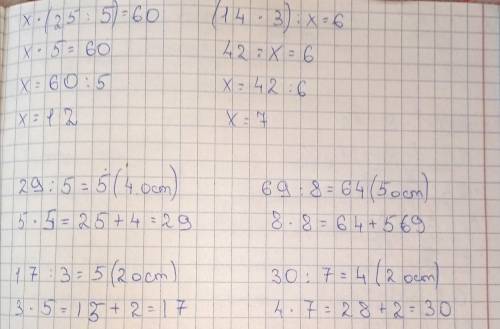 x · (25 : 5) = 60
x · 5 = 60
x = 60 : 5
x = 12
(14 · 3) : x = 6
42 = x = 6
x = 42 : 6
x = 7
29 : 5 = 5 (4 ост)
5 · 5 = 25 + 4 = 29
69 : 8 = 64 (5 ост)
8 · 8 = 64 + 569
17 : 3 = 5 (2 ост)
3 · 5 = 15 + 2 = 17
30 : 7 = 4 (2 ост)
4 · 7 = 28 + 2 = 30